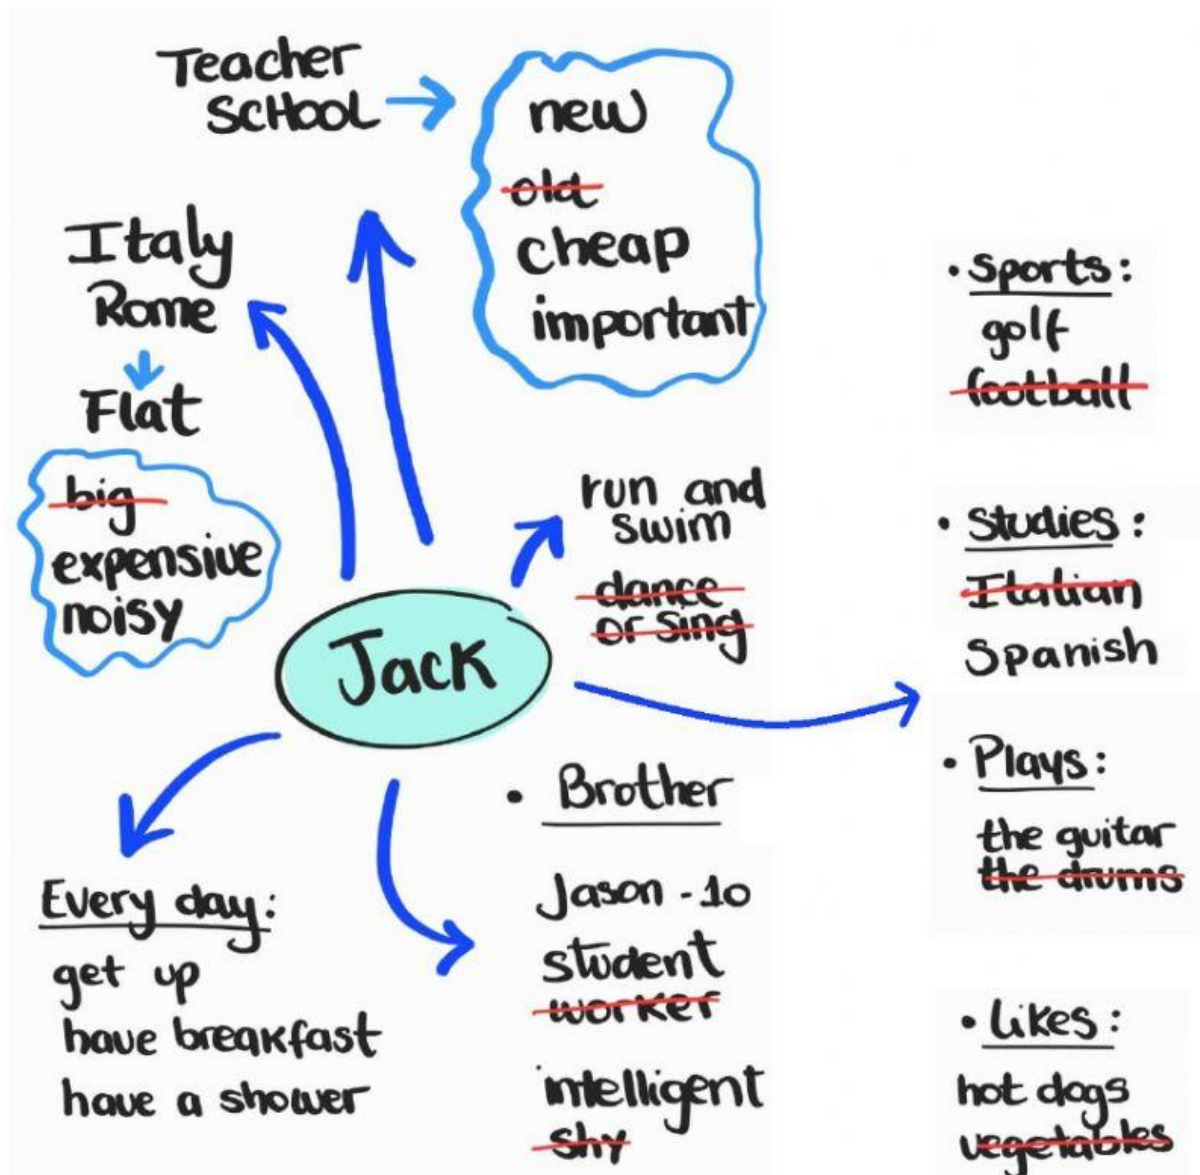 Teacher
SCHOOL
new
old
cheap
important
Italy
Rome
Flat
big
expensive
noisy
run and
swim
dance
or sing
Jack
Every day:
get up
have breakfast
have a shower
• Brother
Jason - 10
student
worker
intelligent
shy
• Sports:
golf
football
• Studies:
Italian
Spanish
• Plays:
the guitar
the drums
• Likes:
hot dogs
vegetables